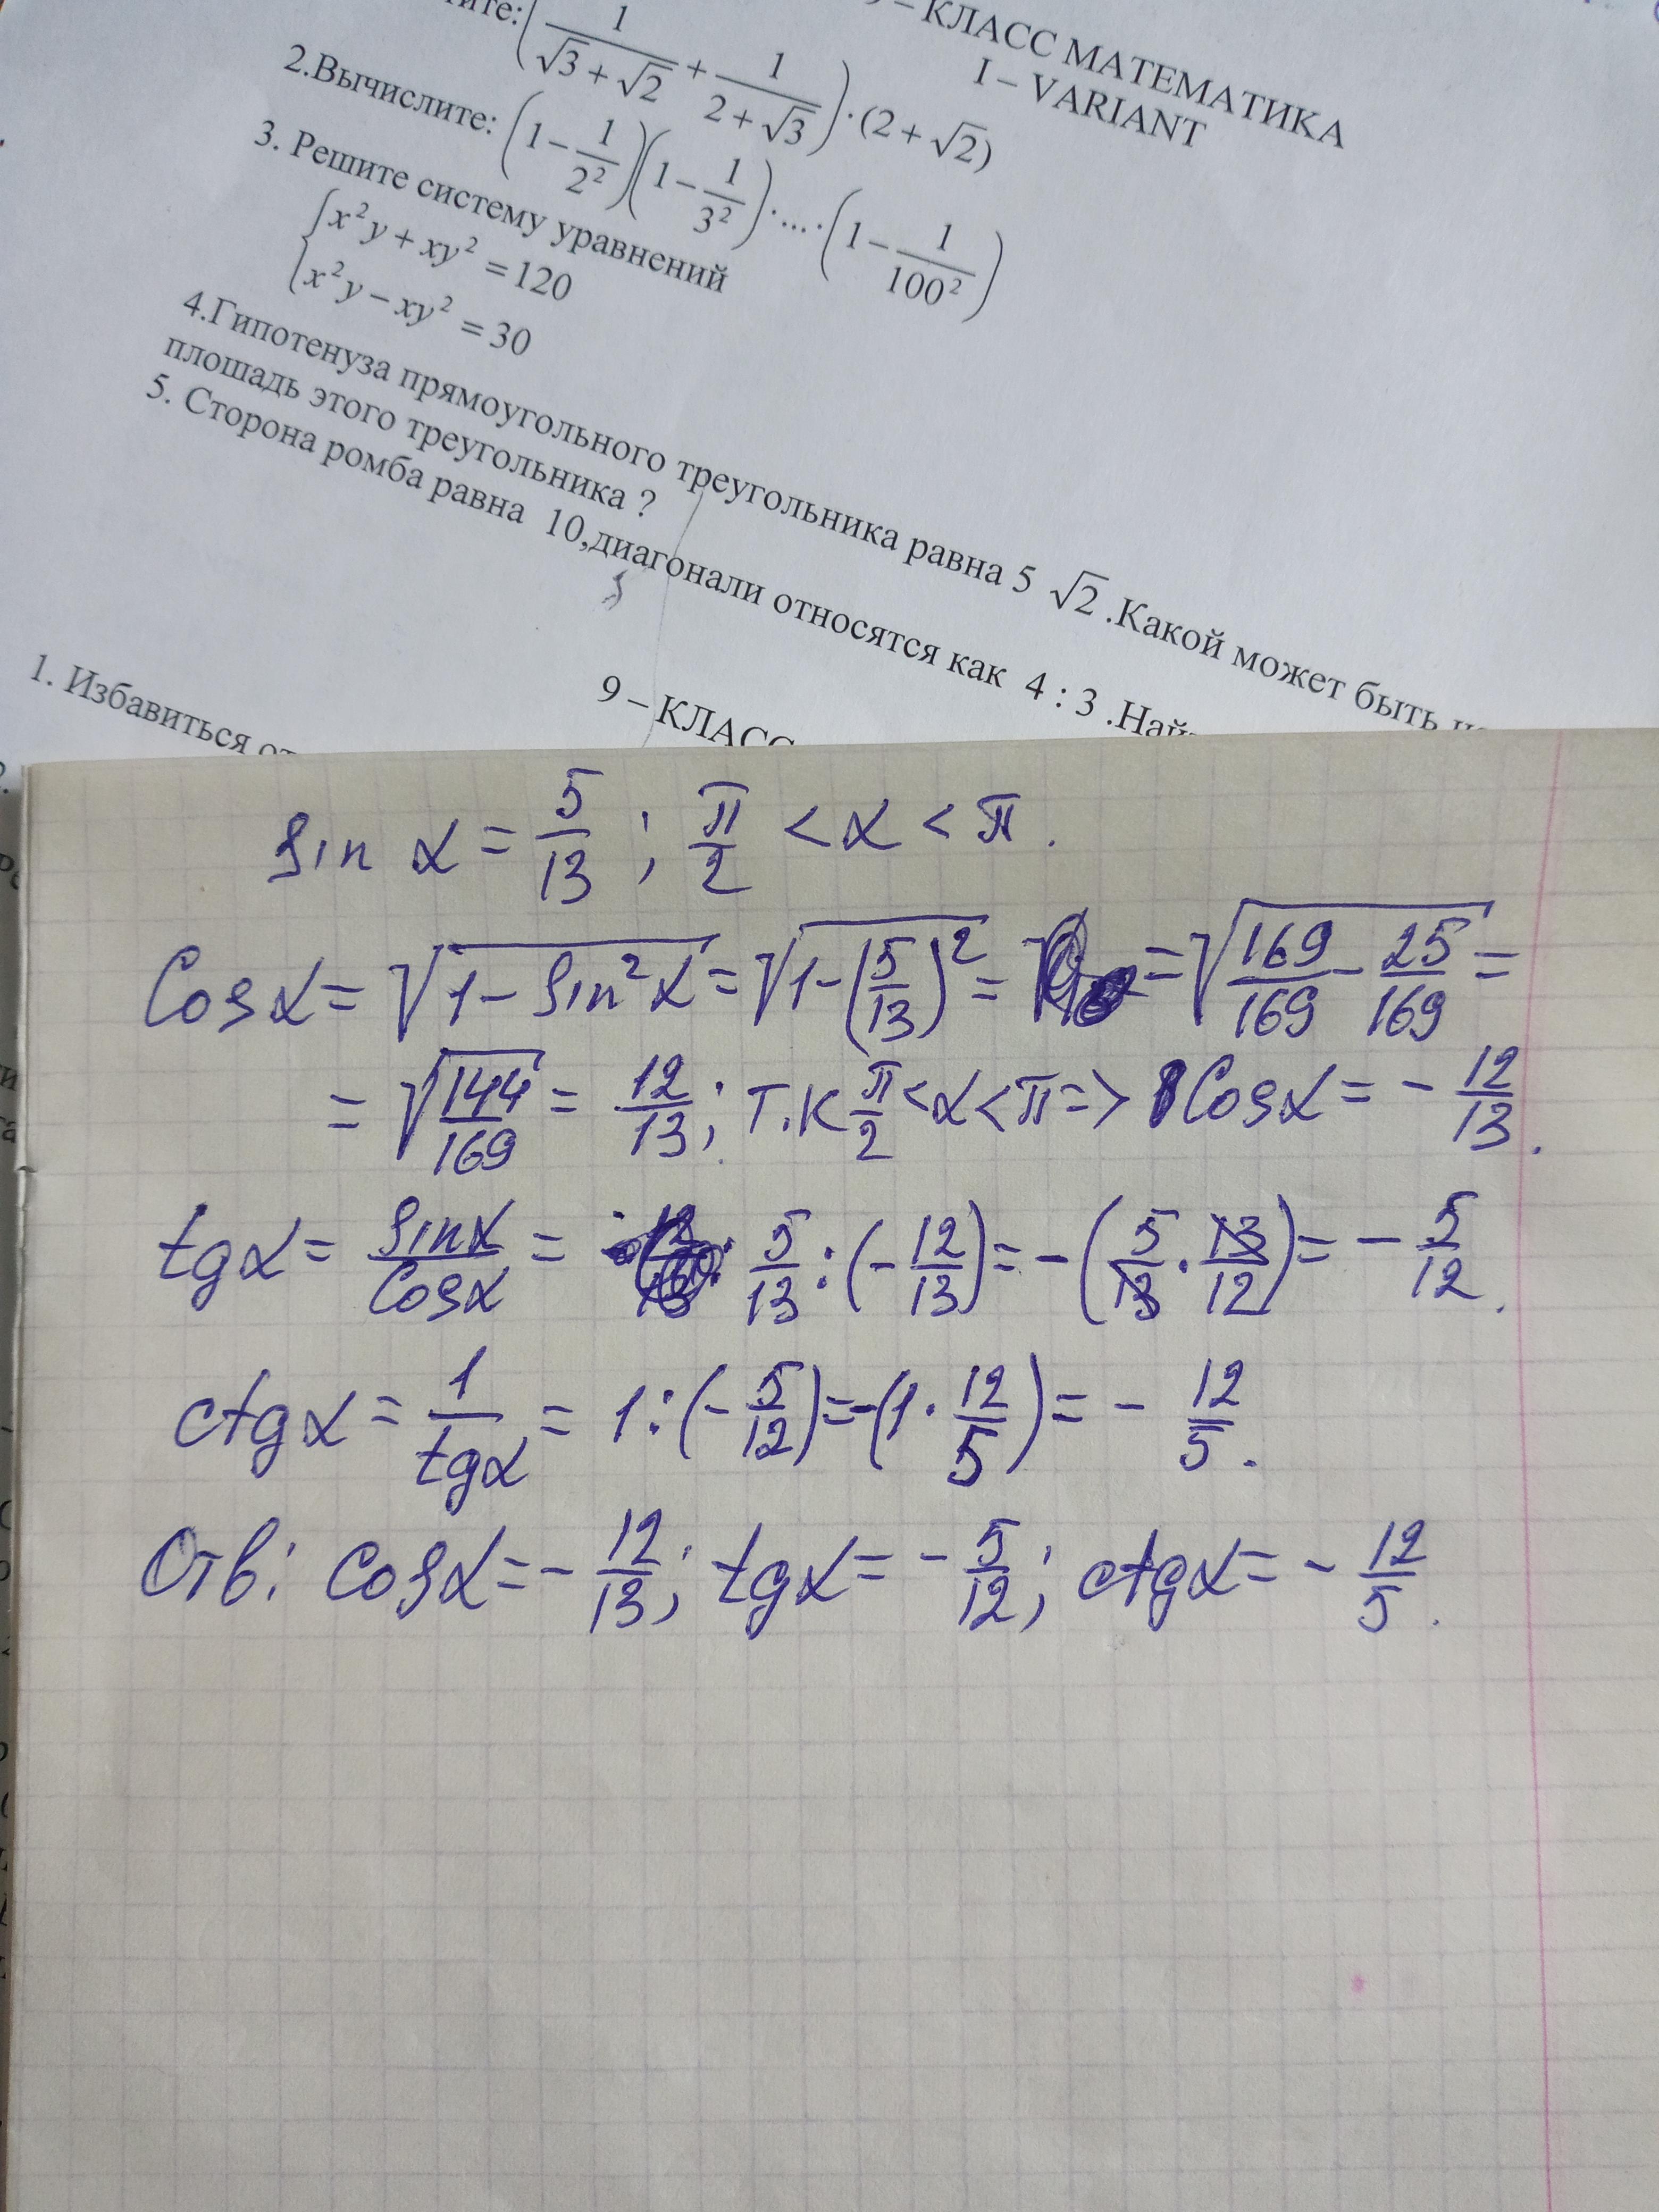 – КЛАСС МАТЕМАТИКА
I – VARIANT
(1/(√3 + √2) + 1/(2 + √3)) · (2 + √2)
2.Вычислите: (1 – 1/2²)(1 – 1/3²)·...·(1 – 1/100²)
3. Решите систему уравнений
{x²y + xy² = 120
{x²y – xy² = 30
4.Гипотенуза прямоугольного треугольника равна 5 √2 .Какой может быть
плошадь этого треугольника ?
5. Сторона ромба равна 10,диагонали относятся как 4 : 3 .Най
9 – КЛАСС
1. Избавиться от
sin α = 5/13 ; π/2 < α < π.
Cos α = √(1 – sin²α) = √(1 – (5/13)²) = = √(169/169 – 25/169) =
= √(144/169) = 12/13; т.к π/2 < α < π => Cos α = – 12/13.
tg α = sin α/Cos α = 5/13 : (– 12/13) = – (5/13 · 13/12) = – 5/12.
ctg α = 1/tg α = 1 : (– 5/12) = –(1 · 12/5) = – 12/5.
Отв: Cos α = – 12/13; tg α = – 5/12; ctg α = – 12/5.